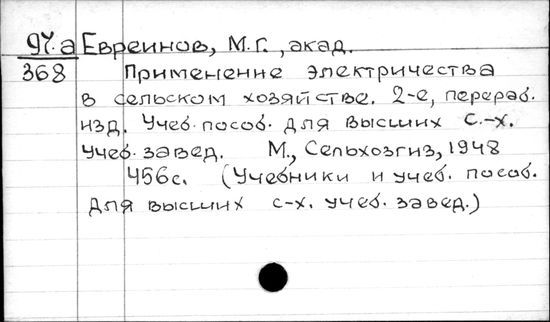 97.а Евреинов, М.Г., акад.
368 Применение электричества
в сельском хозяйстве. 2-е, перераб.
изд. Учеб. пособ. для высших с.-х.
учеб. завед. М., Сельхозгиз, 1948
456с. (Учебники и учеб. пособ.
для высших с-х. учеб. завед.)